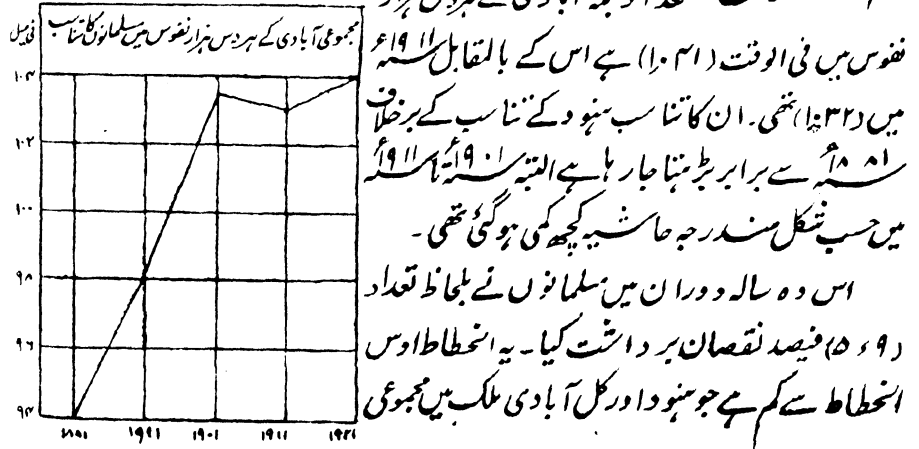 مجموعی آبادی کے ہر دس ہزار نفوس میں مسلمانوں کا تناسب
فی میل
۱۰۴
۱۰۲
۱۰۰
۹۸
۹۶
۹۴
۱۸۸۱ ۱۹۰۱ ۱۹۱۱ ۱۹۲۱
نفوس میں فی الوقت (۱۰۴۱) ہے اس کے بالمقابل سنہ ۱۹۱۱ء
میں (۱۰۳۲) تھی۔ ان کا تناسب ہنود کے تناسب کے برخلاف
سنہ ۱۸۸۱ء سے برابر بڑہتا جا رہا ہے البتہ سنہ ۱۹۰۱ء تا سنہ ۱۹۱۱ء
میں حسب شکل مندرجہ حاشیہ کچھ کمی ہوگئی تھی۔
اس دہ سالہ دوران میں مسلمانوں نے بلحاظ تعداد
(۹ء۵) فیصد نقصان برداشت کیا۔ یہ انحطاط اوس
انحطاط سے کم ہے جو ہنود اور کل آبادی ملک میں مجموعی